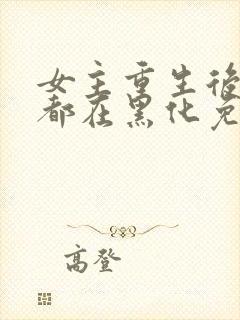 女主重生後
都在黑化免
高登